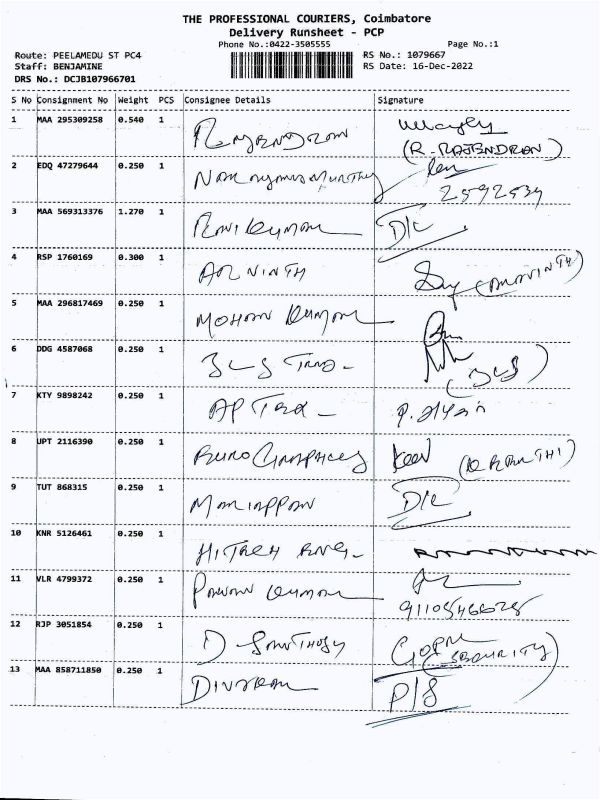 THE PROFESSIONAL COURIERS, Coimbatore
Delivery Runsheet - PCP
Phone No.:0422-3505555
Page No.:1
Route: PEELAMEDU ST PC4
RS No.: 1079667
Staff: BENJAMINE
RS Date: 16-Dec-2022
DRS No.: DCJB107966701
S No Consignment No Weight PCS Consignee Details Signature
1 MAA 295309258 0.540 1 RAJENDRAN
(R. RAJENDRAN)
2 EDQ 47279644 0.250 1
2592534
3 MAA 569313376 1.270 1 RAVI KUMAR D/L
4 RSP 1760169 0.300 1 ARVINTH (ARAVINTH)
5 MAA 296817469 0.250 1 MOHAN KUMAR
6 DDG 4587068 0.250 1
7 KTY 9898242 0.250 1 AP
8 UPT 2116390 0.250 1 EURO GRAPHICS
9 TUT 868315 0.250 1 MARIAPPAN D/L
10 KNR 5126461 0.250 1 HITECH ENG-
11 VLR 4799372 0.250 1 PAWAN KUMAR
12 RJP 3051854 0.250 1 D SANTHOSH
(SECURITY)
13 MAA 858711850 0.250 1 DIVAKAR P/S